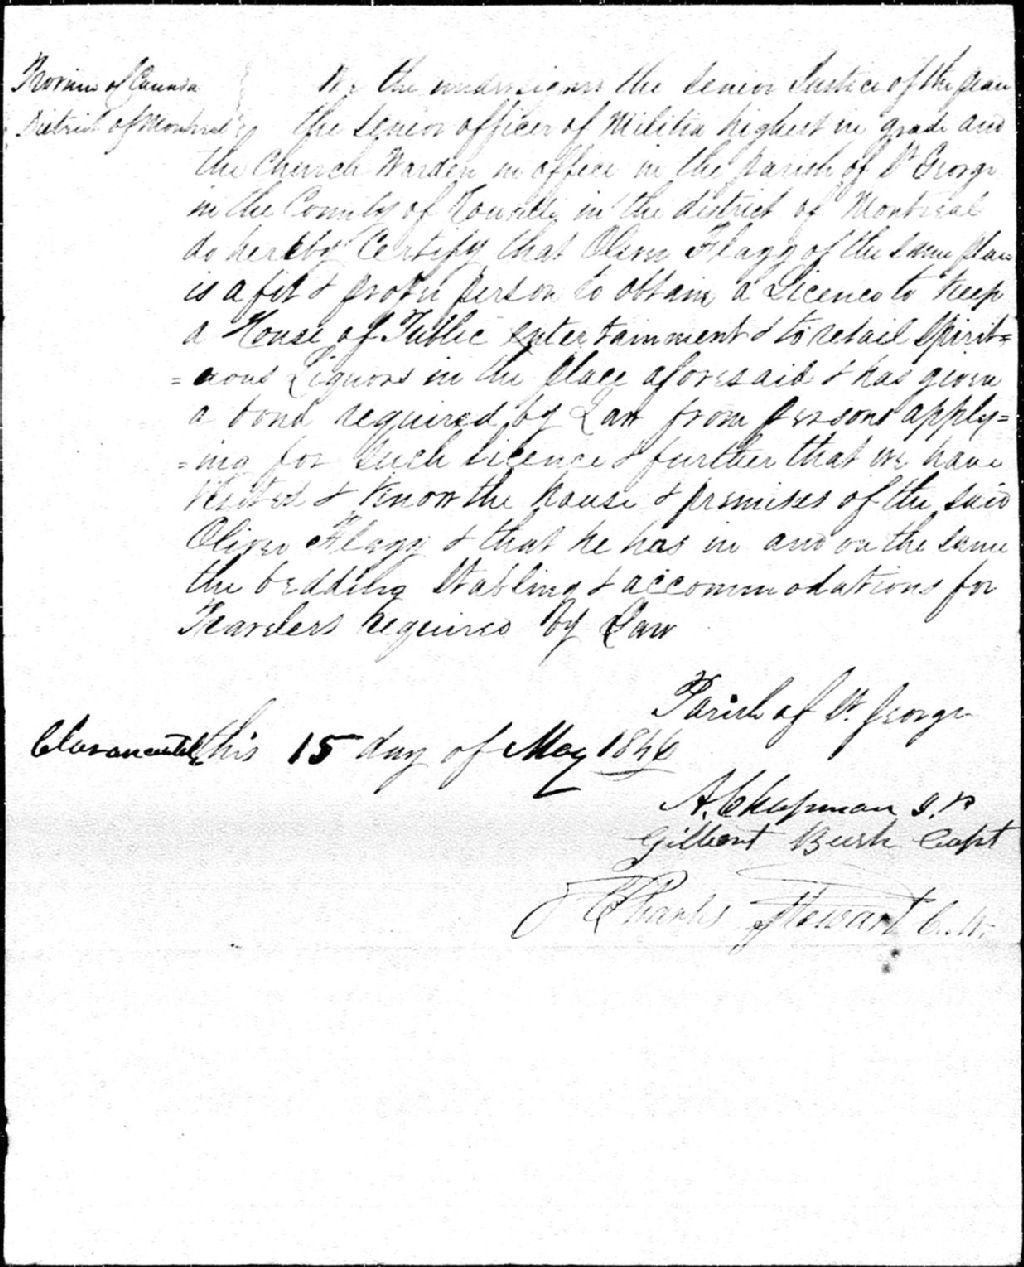 Province of Canada
District of Montreal
We the undersigned the Senior Justice of the peace
the senior officer of Militia highest in grade and
the Church Warden in office in the parish of St George
in the County of Rouville in the district of Montreal
do hereby Certify that Oliver Flagg of the same place
is a fit & proper person to obtain a Licence to keep
a House of Public entertainment & to retail Spirit=
=uous Liquors in the place aforesaid & has given
a bond required by Law from persons apply=
=ing for such licence & further that we have
visited & Know the house & premises of the said
Oliver Flagg & that he has in and on the same
the bedding Stabling & accommodations for
Travelers required by Law
Parish of St. George
this 15 day of May 1846
A. Chapman J.P
Gilbert Bush Capt
Charles Stewart C.W.